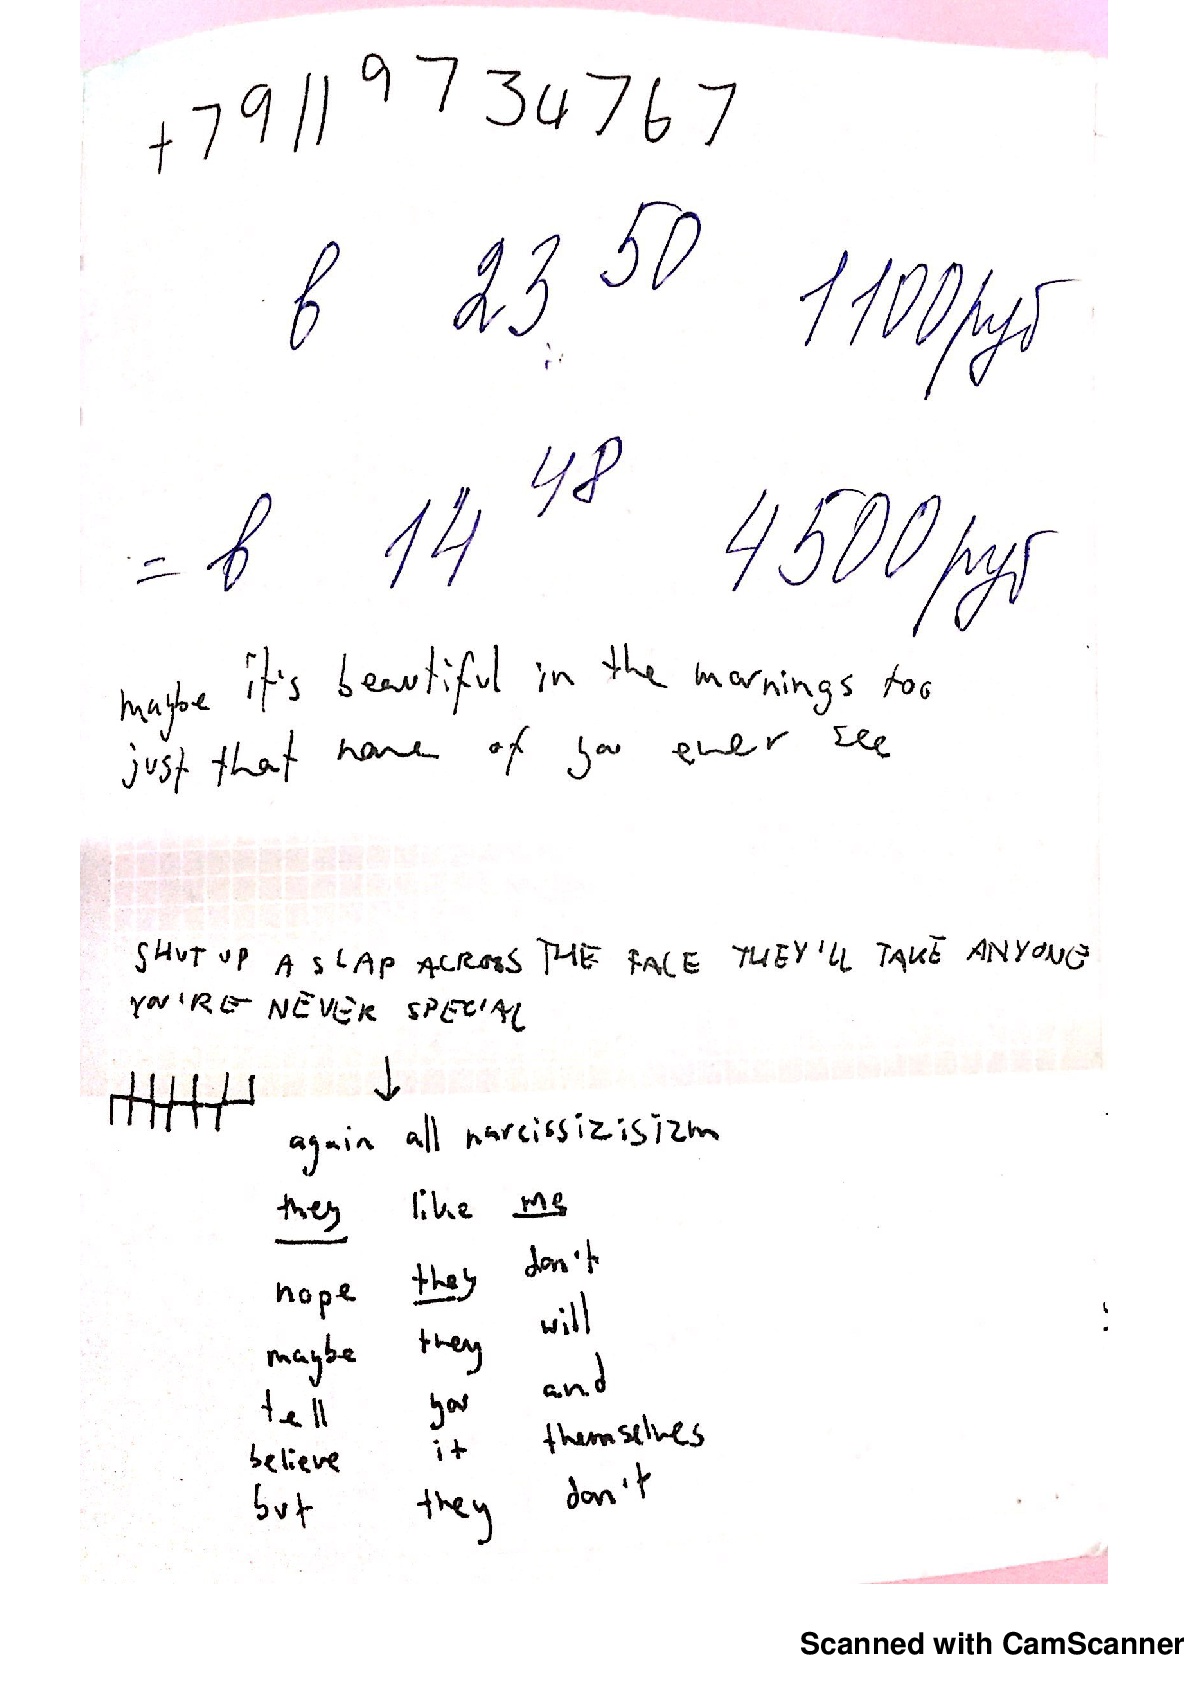 +79119734767
в 23 50 1100 руб
= в 14 48 4500 руб
maybe it's beautiful in the mornings too
just that none of you ever see
SHUT UP A SLAP ACROSS THE FACE THEY'LL TAKE ANYONE
YOU'RE NEVER SPECIAL
↓
again all narcissizisizm
they like me
nope they don't
maybe they will
tell you and
believe it themselves
but they don't
Scanned with CamScanner